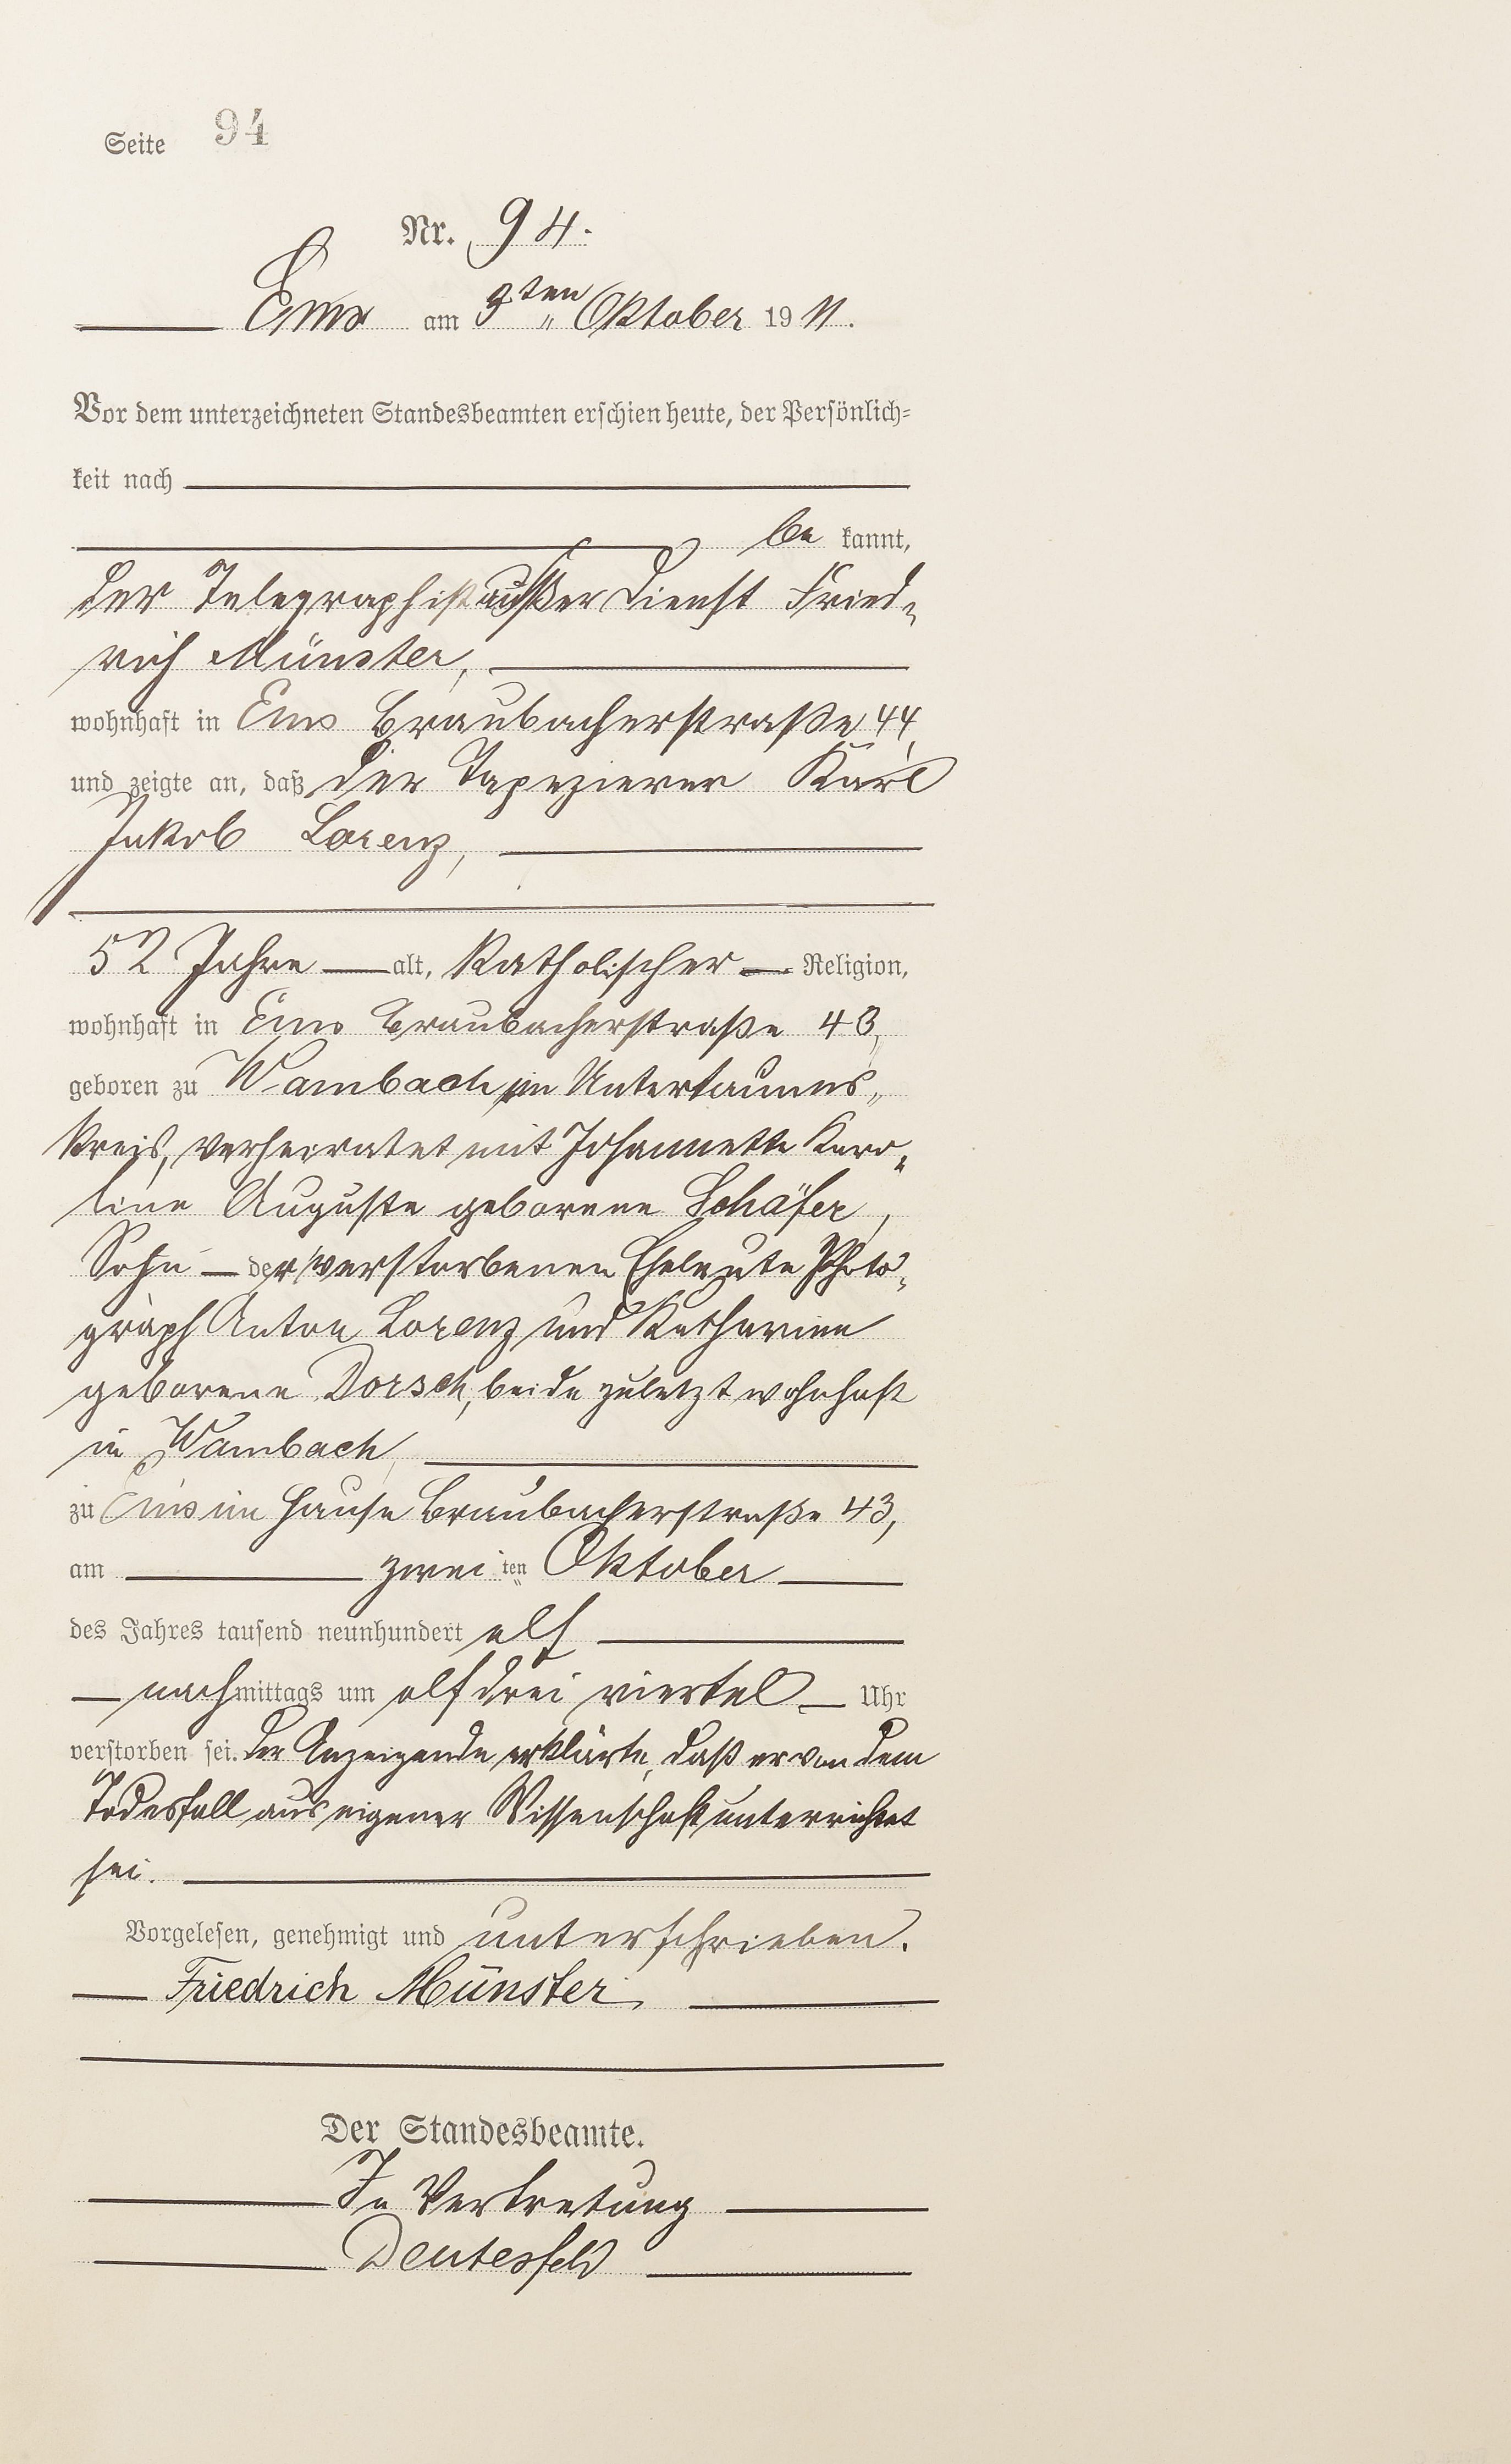 Seite 94
Nr. 94.
Ems am 3ten Oktober 1911.
Vor dem unterzeichneten Standesbeamten erschien heute, der Persönlich-
keit nach
be kannt,
der Telegraphist außer Dienst Fried-
rich Münster,
wohnhaft in Ems Braubacherstraße 44,
und zeigte an, daß der Tapezierer Karl
Jakob Lorenz,
52 Jahre alt, katholischer Religion,
wohnhaft in Ems Braubacherstraße 43,
geboren zu Wambach im Untertaunus-
kreis, verheiratet mit Johannette Karo-
line Auguste geborene Schäfer,
Sohn der verstorbenen Eheleute Photo-
graph Anton Lorenz und Katharina
geborene Dorsch, beide zuletzt wohnhaft
in Wambach,
zu Ems im Hause Braubacherstraße 43,
am zwei ten Oktober
des Jahres tausend neunhundert elf
nachmittags um elf drei viertel Uhr
verstorben sei. Der Anzeigende erklärte, daß er von dem
Todesfall aus eigener Wissenschaft unterrichtet
sei.
Vorgelesen, genehmigt und unterschrieben.
Friedrich Münster
Der Standesbeamte.
In Vertretung
Deutesfeld